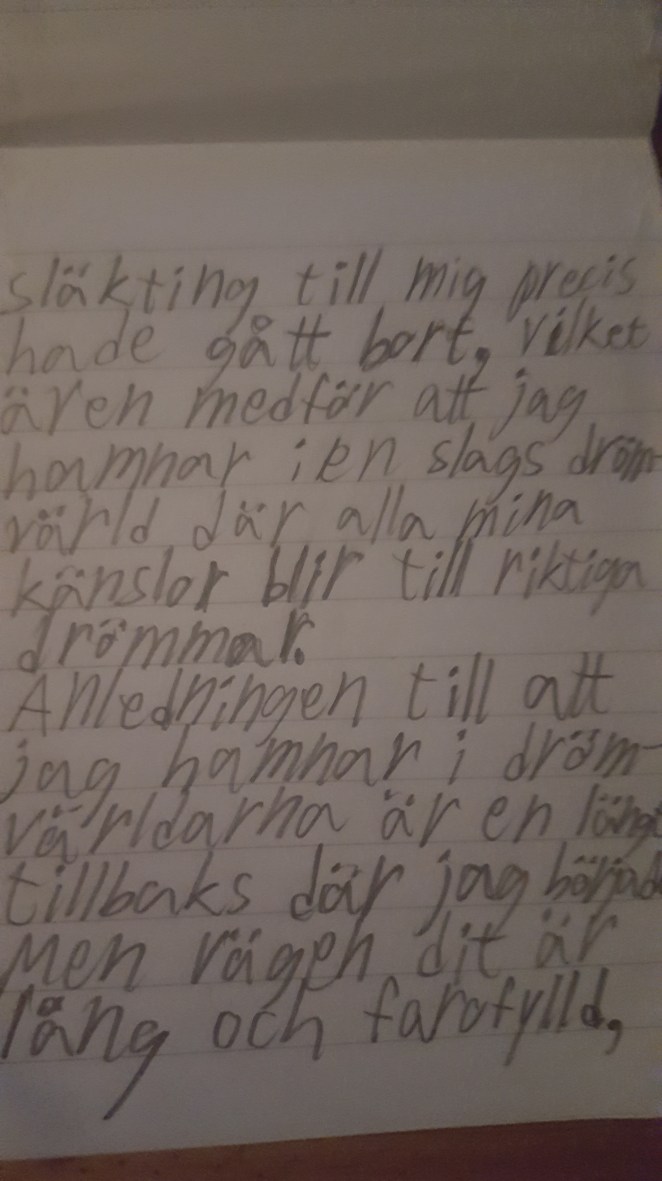 släkting till mig precis
hade gått bort, vilket
även medför att jag
hamnar i en slags dröm-
värld där alla mina
känslor blir till riktiga
drömmar.
Anledningen till att
jag hamnar i dröm-
världarna är en
tillbaks där jag började
Men vägen dit är
lång och farofylld,